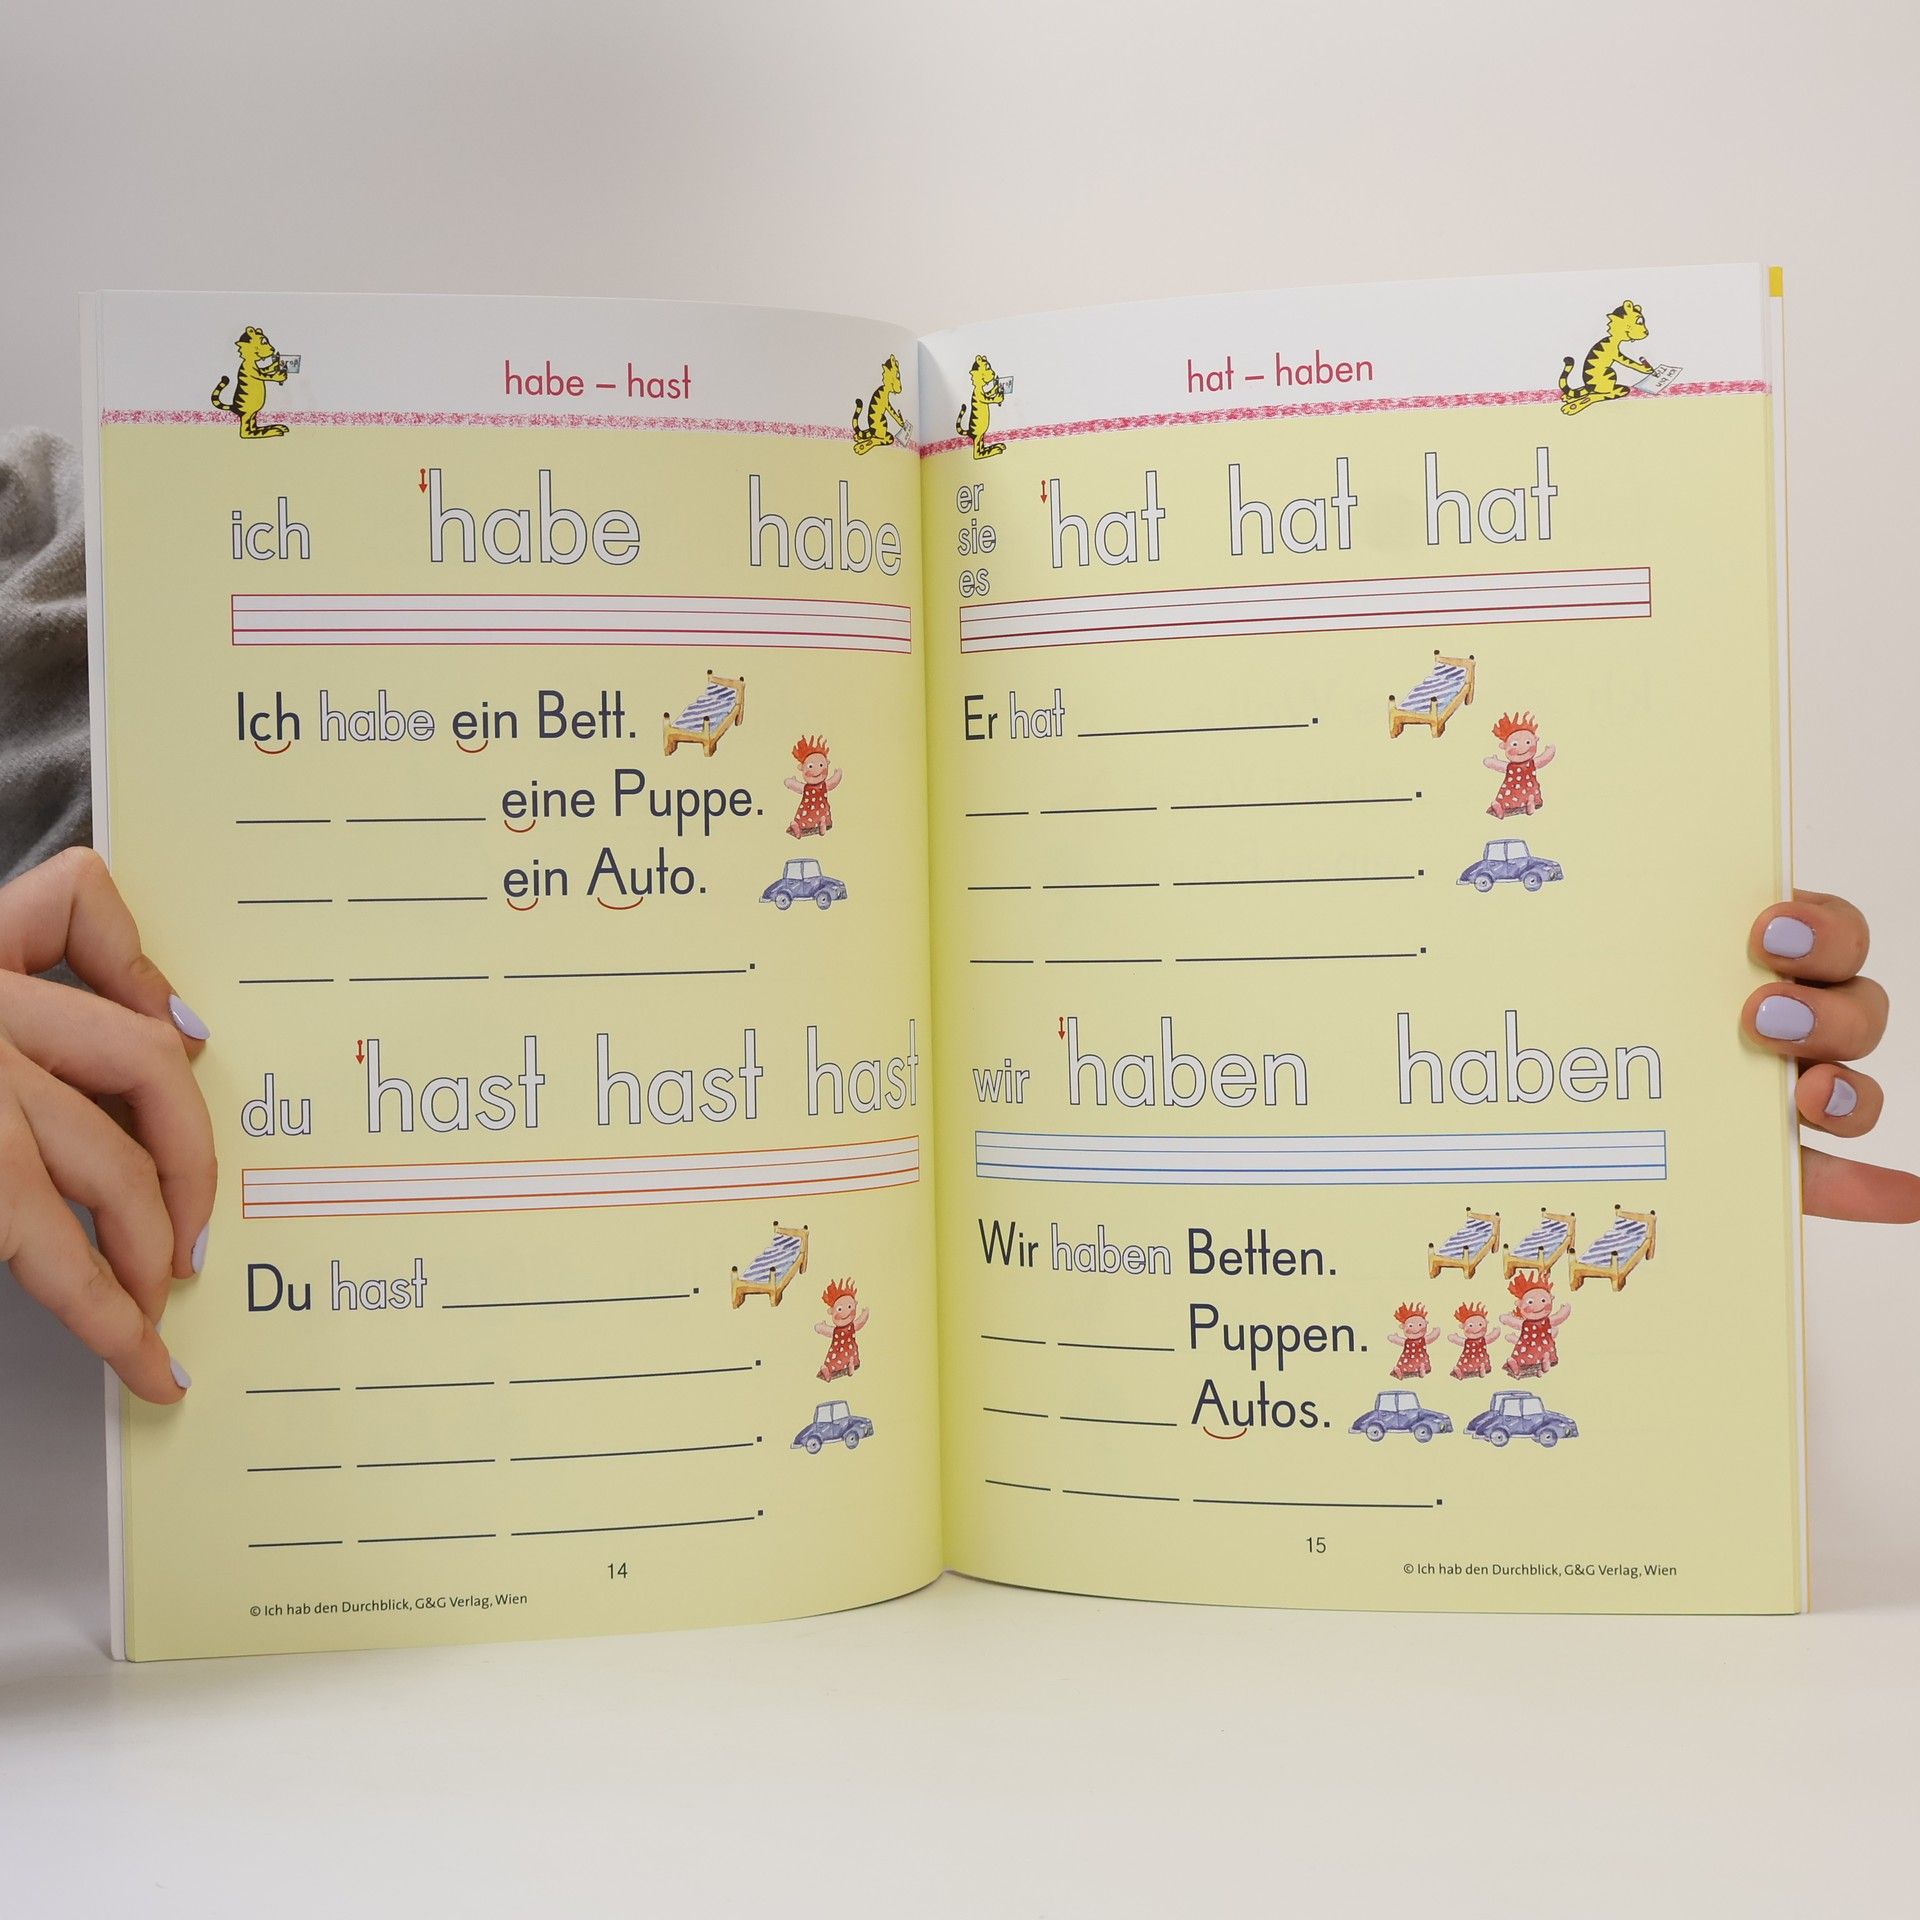 habe – hast
ich habe habe
Ich habe ein Bett.
eine Puppe.
ein Auto.
du hast hast hast
Du hast
14
© Ich hab den Durchblick, G&G Verlag, Wien
hat – haben
er
sie
es
hat hat hat
Er hat
wir haben haben
Wir haben Betten.
Puppen.
Autos.
15
© Ich hab den Durchblick, G&G Verlag, Wien